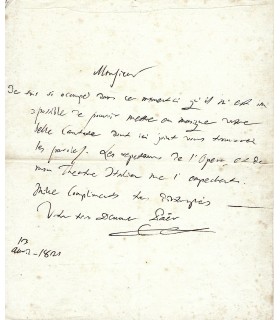 Monsieur
Je suis si occupé dans ce moment ci qu'il m'est im
possible de pouvoir mettre en musique votre
belle Cantate dont ci joint vous trouverez
les paroles. Les repetitions de l'Opera et de
mon Theatre Italien me l'empechent.
Mille Compliments
Votre
Paër